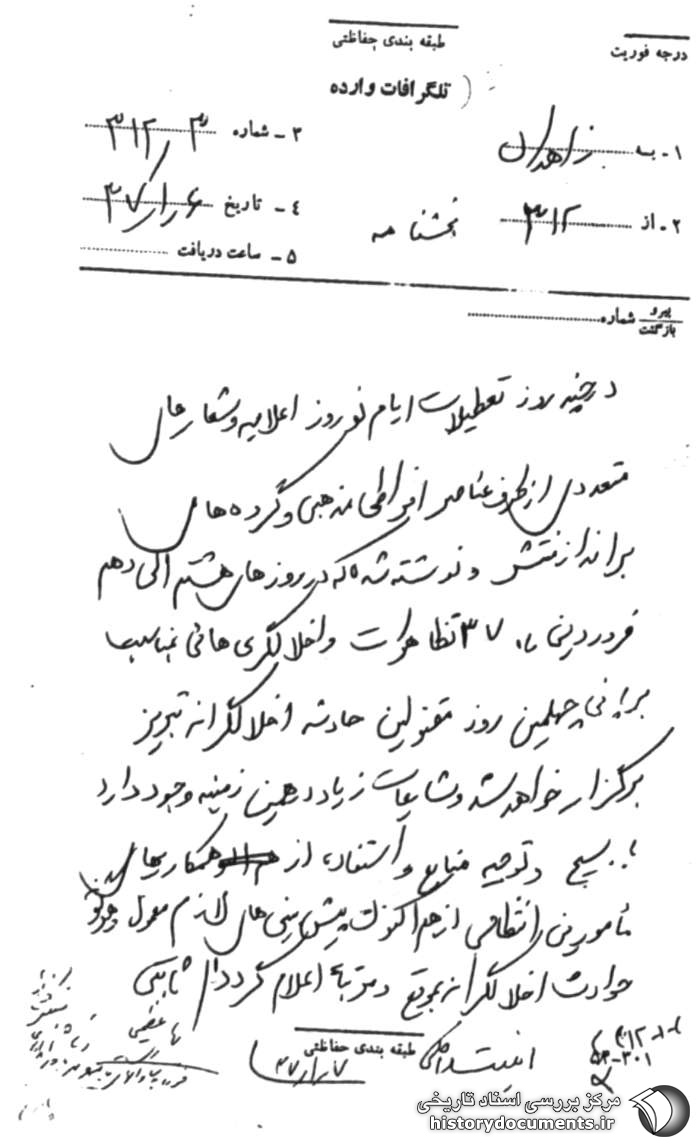 طبقه بندی حفاظتی
درجه فوریت
تلگرافات وارده
۱ - به زاهدان
۳ - شماره ۳۱۲/۳
۲ - از ۳۱۲
بخشنامه
٤ - تاریخ ۳۷/۱/۶
۵ - ساعت دریافت
پیرو
بازگشت شماره
در چند روز تعطیلات ایام نوروز اعلامیه و شعارهای
متعددی از طرف عناصر افراطی مذهبی و گروه های
برانداز منتشر و نوشته شده که در روزهای هشتم الی دهم
فروردین ۳۷ تظاهرات و اخلالگری هائی بمناسبت
برپائی چهلمین روز مقتولین حادثه اخلالگرانه تبریز
برگزار خواهد شد و شایعات زیاد در همین زمینه وجود دارد
با بسیج و توجیه منابع و استفاده از همکاریهای
مأمورین انتظامی از هم اکنون پیش بینی های لازم معمول و هرگونه
حوادث اخلالگرانه بموقع و مرتبا اعلام گردد. ثابتی
طبقه بندی حفاظتی
۳۷/۱/۷
مرکز بررسی اسناد تاریخی
historydocuments.ir